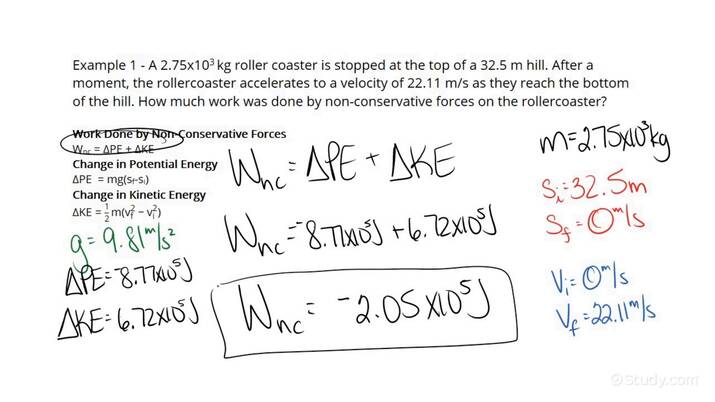 Example 1 - A 2.75x10³ kg roller coaster is stopped at the top of a 32.5 m hill. After a
moment, the rollercoaster accelerates to a velocity of 22.11 m/s as they reach the bottom
of the hill. How much work was done by non-conservative forces on the rollercoaster?
Work Done by Non-Conservative Forces
Wₙc = ΔPE + ΔKE
Change in Potential Energy
ΔPE = mg(sf-sᵢ)
Change in Kinetic Energy
ΔKE = ½m(vf² − vᵢ²)
g = 9.81 m/s²
ΔPE = ⁻8.77x10⁵J
ΔKE = 6.72x10⁵J
Wnc = ΔPE + ΔKE
Wnc = ⁻8.77x10⁵J + 6.72x10⁵J
Wnc = ⁻2.05x10⁵J
m = 2.75x10³kg
Si = 32.5m
Sf = 0 m/s
Vi = 0 m/s
Vf = 22.11 m/s
©Study.com